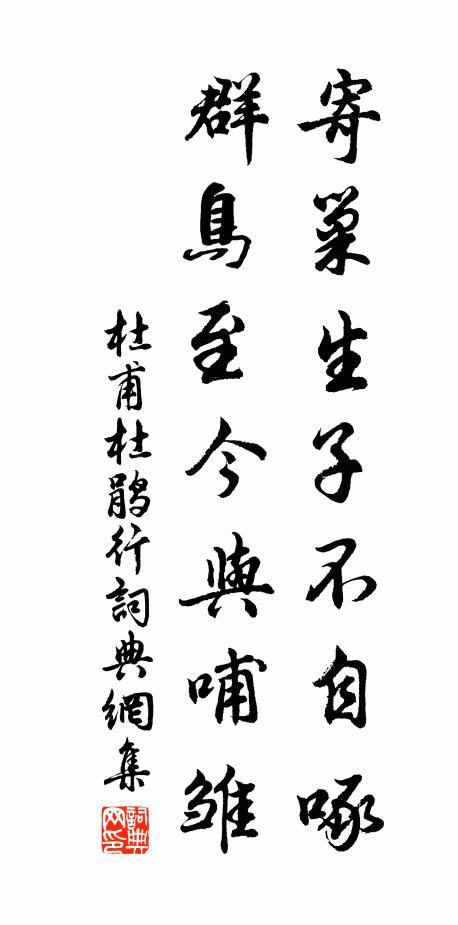 寄巢生子不自啄
群鳥至今與哺雛
杜甫杜鵑行詞典網集
詞典
网印